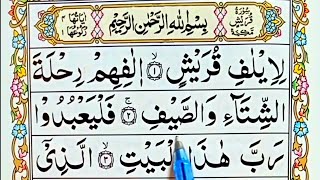 سورة قريش مكية
بِسْمِ اللّٰهِ الرَّحْمٰنِ الرَّحِيْمِ
لِاِيْلٰفِ قُرَيْشٍ ۙ﴿۱﴾ اٖلٰفِهِمْ رِحْلَةَ
الشِّتَآءِ وَالصَّيْفِ ۚ﴿۲﴾ فَلْيَعْبُدُوْا
رَبَّ هٰذَا الْبَيْتِ ۙ﴿۳﴾ الَّذِيْۤ